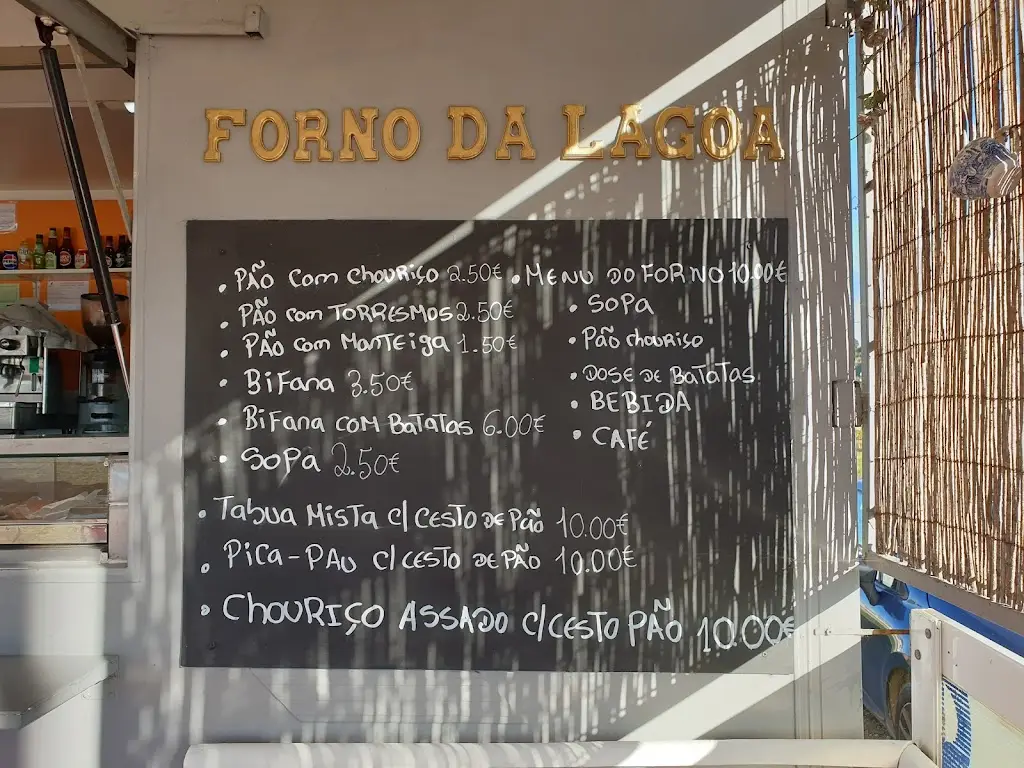 FORNO DA LAGOA
• PÃO COM CHOURIÇO 2.50€
• PÃO COM TORRESMOS 2.50€
• PÃO COM MANTEIGA 1.50€
• BIFANA 3.50€
• BIFANA COM BATATAS 6.00€
• SOPA 2.50€
• MENU DO FORNO 10.00€
• SOPA
• PÃO CHOURIÇO
• DOSE DE BATATAS
• BEBIDA
• CAFÉ
• TABUA MISTA C/ CESTO DE PÃO 10.00€
• PICA-PAU C/ CESTO DE PÃO 10.00€
• CHOURIÇO ASSADO C/CESTO PÃO 10.00€